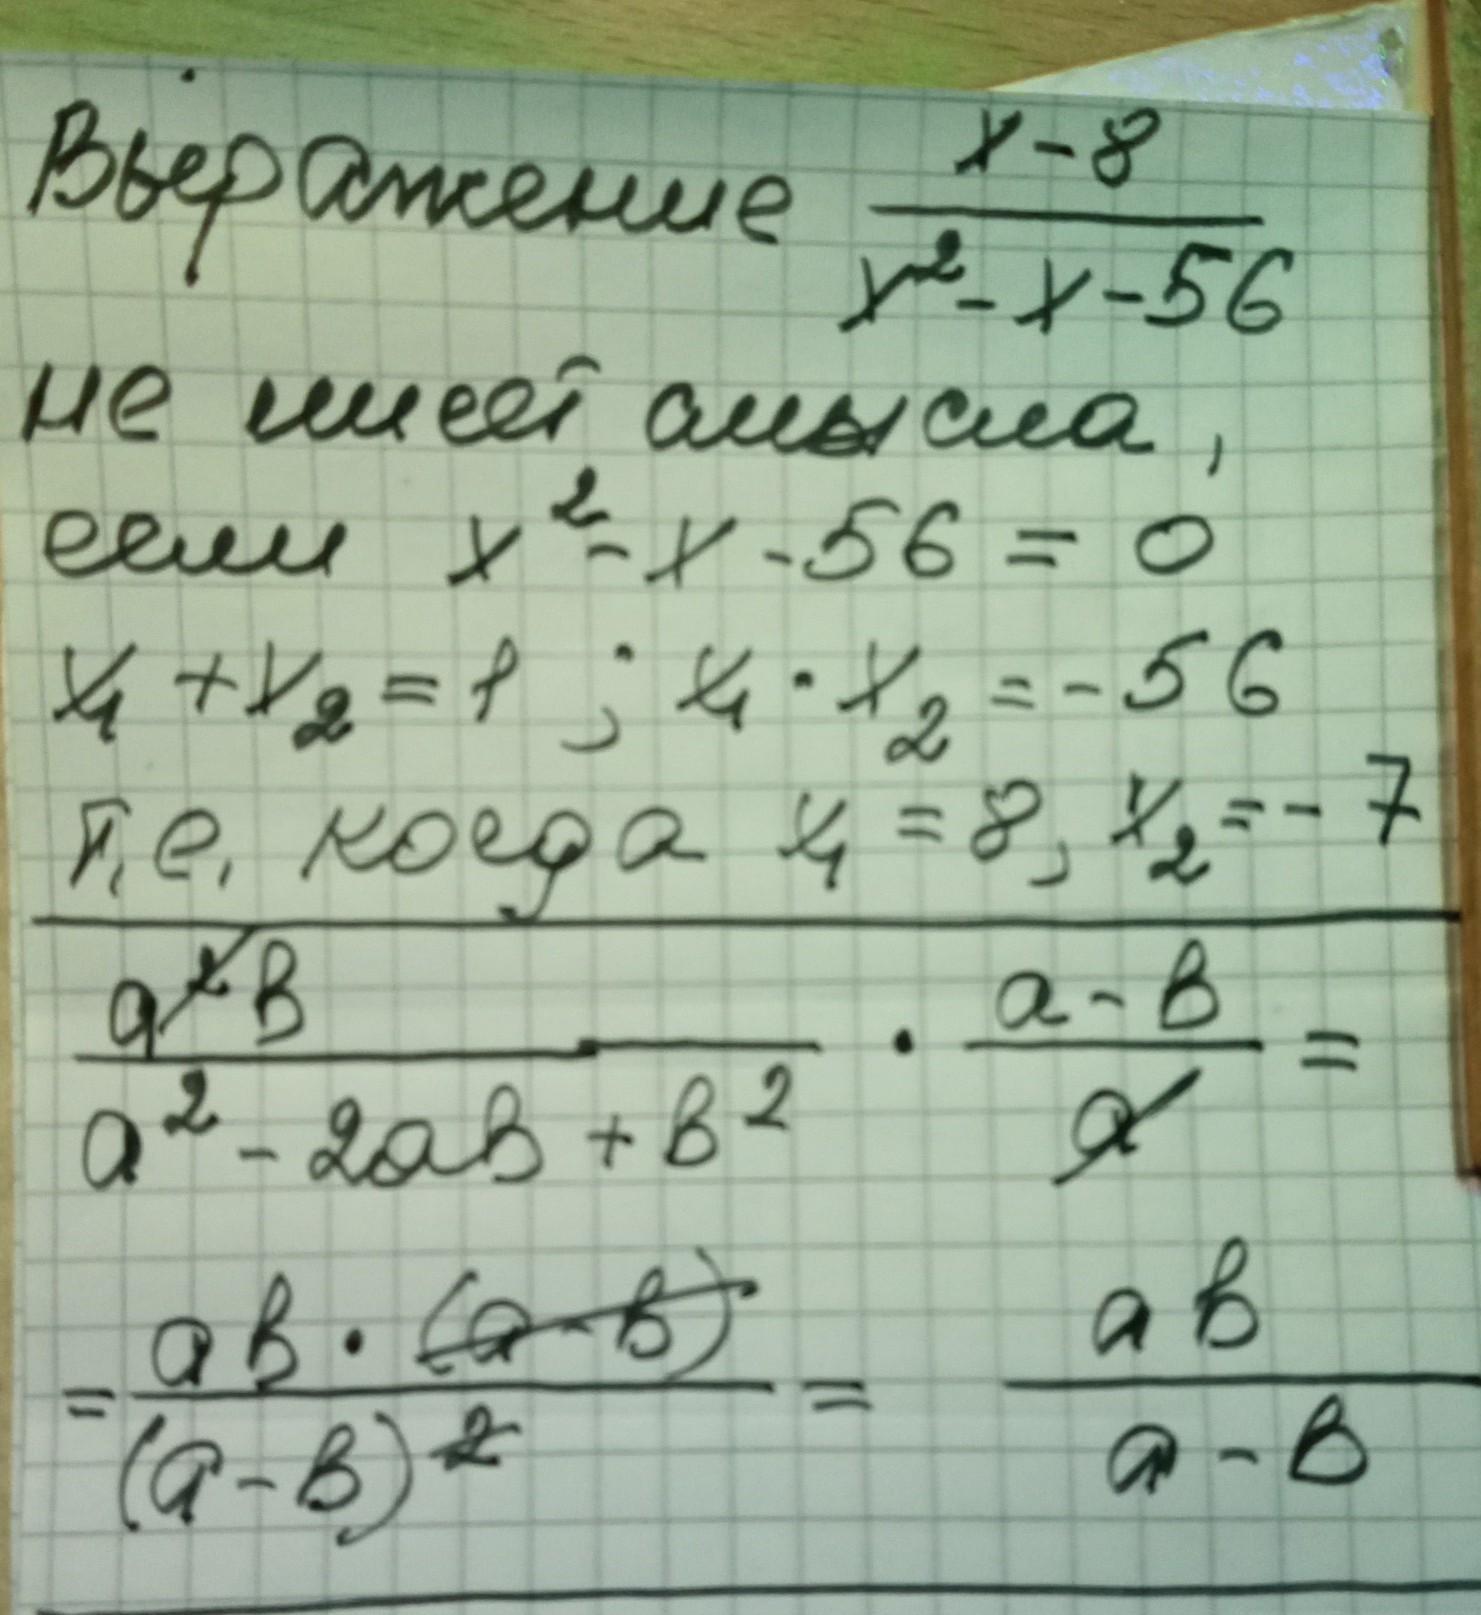 Выражение x-8 / x²-x-56
не имеет смысла,
если x²-x-56=0
x₁+x₂=1; x₁·x₂=-56
т.е. когда x₁=8, x₂=-7
a²b / a²-2ab+b² · a-b / a =
= ab·(a-b) / (a-b)² = ab / a-b